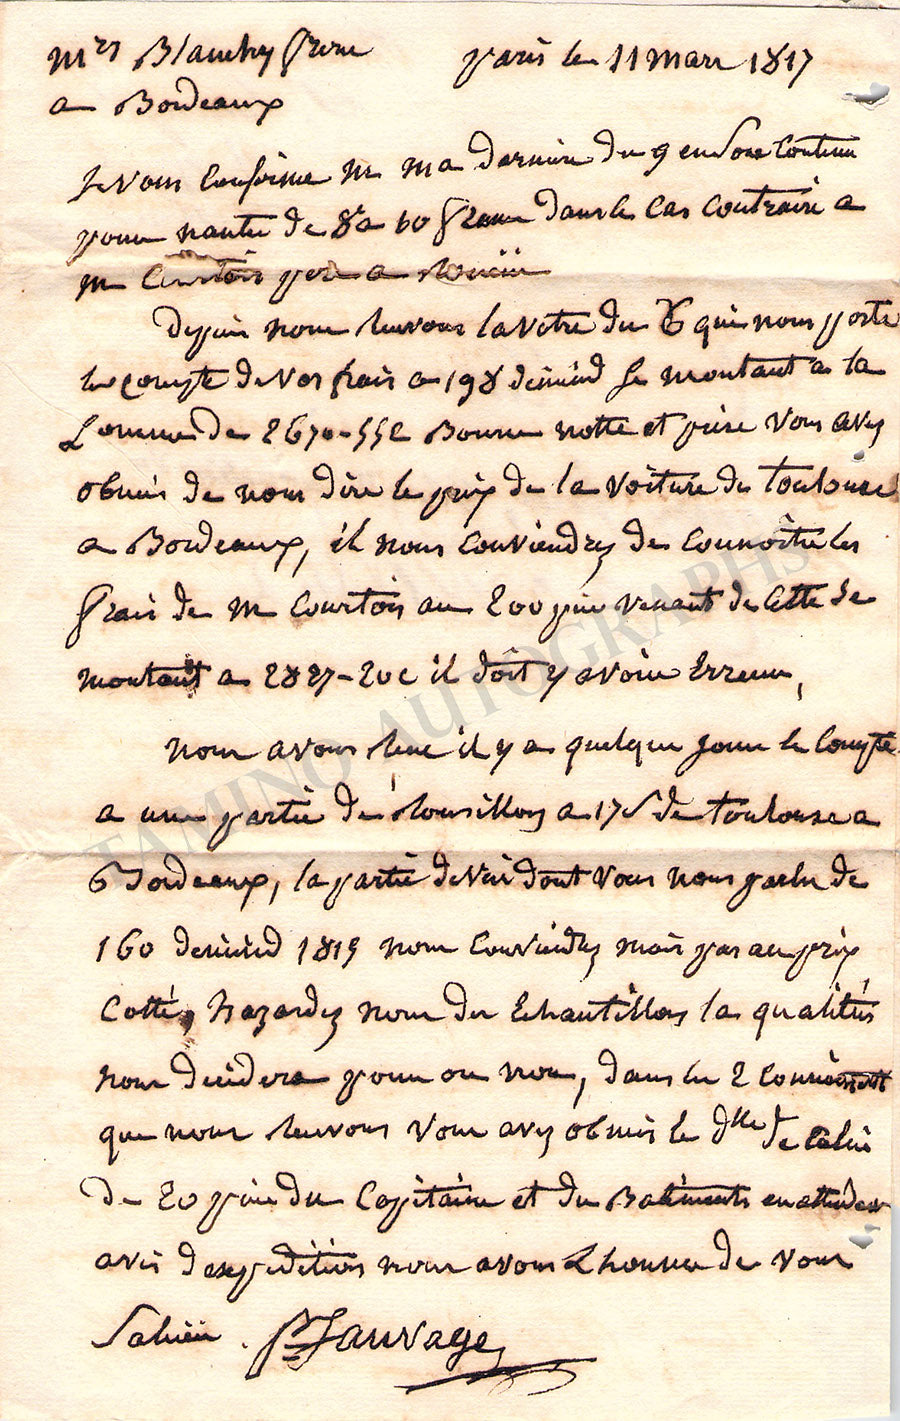 Mrs Blanchy frere Paris le 11 Mars 1817
a Bordeaux
Je vous confirme M ma derniere du 9 en
pour nantes de 8 a 60 dans le cas contraire a
M Courtois pere a
Depuis nous recevons la votre du qui nous porte
le compte de vos frais a 198 demind se montant a la
Somme de 2670-55c Bonne notte et prise vous avez
obmis de nous dire le prix de la voiture de Toulouse
a Bordeaux, il nous conviendrez de connoitre les
frais de M Courtois au 200 venant de Cette se
montant a 2827-20c il doit y avoir Erreur,
nous avons recue il y a quelque jour le compte
a une partie de Rousillon a 17 s de Toulouse a
Bordeaux, la partie de vin dont vous nous parlez de
160 demind 1815 nous conviendrez mais pas au prix
Cotté, hazardez nous des Echantillons la qualités
nous decidera pour ou non, dans les 2
que nous recevons vous avez obmis le de Celui
de 20 du Capitaine et du Batiments en attendant
avis d'expedition nous avons L honneur de vous
Saluer. Sauvage
TAMINO AUTOGRAPHS